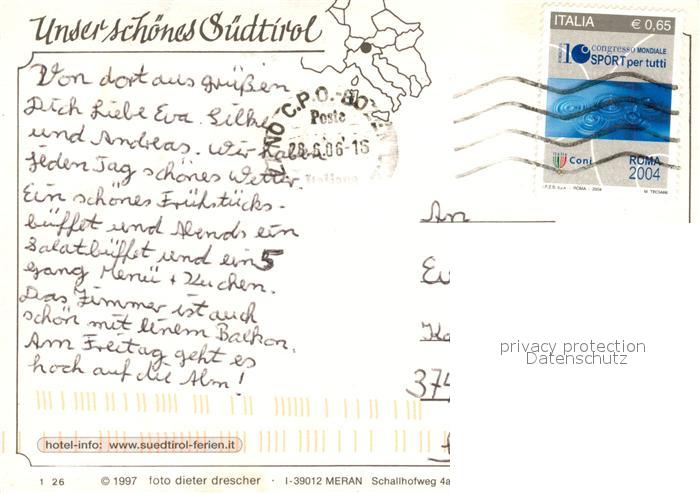 Unser schönes Südtirol
Von dort aus grüßen
Dich liebe Eva. Silke
und Andreas. Wir haben
jeden Tag schönes Wetter.
Ein schönes Frühstücks-
büffet und Abends ein
Salatbüffet und ein 5
gang Menü + Kuchen.
Das Zimmer ist auch
schön mit einem Balkon.
Am Freitag geht es
hoch auf die Alm!
hotel-info: www.suedtirol-ferien.it
1 26 © 1997 foto dieter drescher · I-39012 MERAN Schallhofweg 4a
C.P.O.
Poste
28.6.06-16
Italiane
ITALIA € 0,65
10 congresso MONDIALE
SPORT per tutti
Coni
ROMA
2004
I.P.Z.S. S.p.A. - ROMA - 2004 M. TECSANI
An
374
privacy protection
Datenschutz